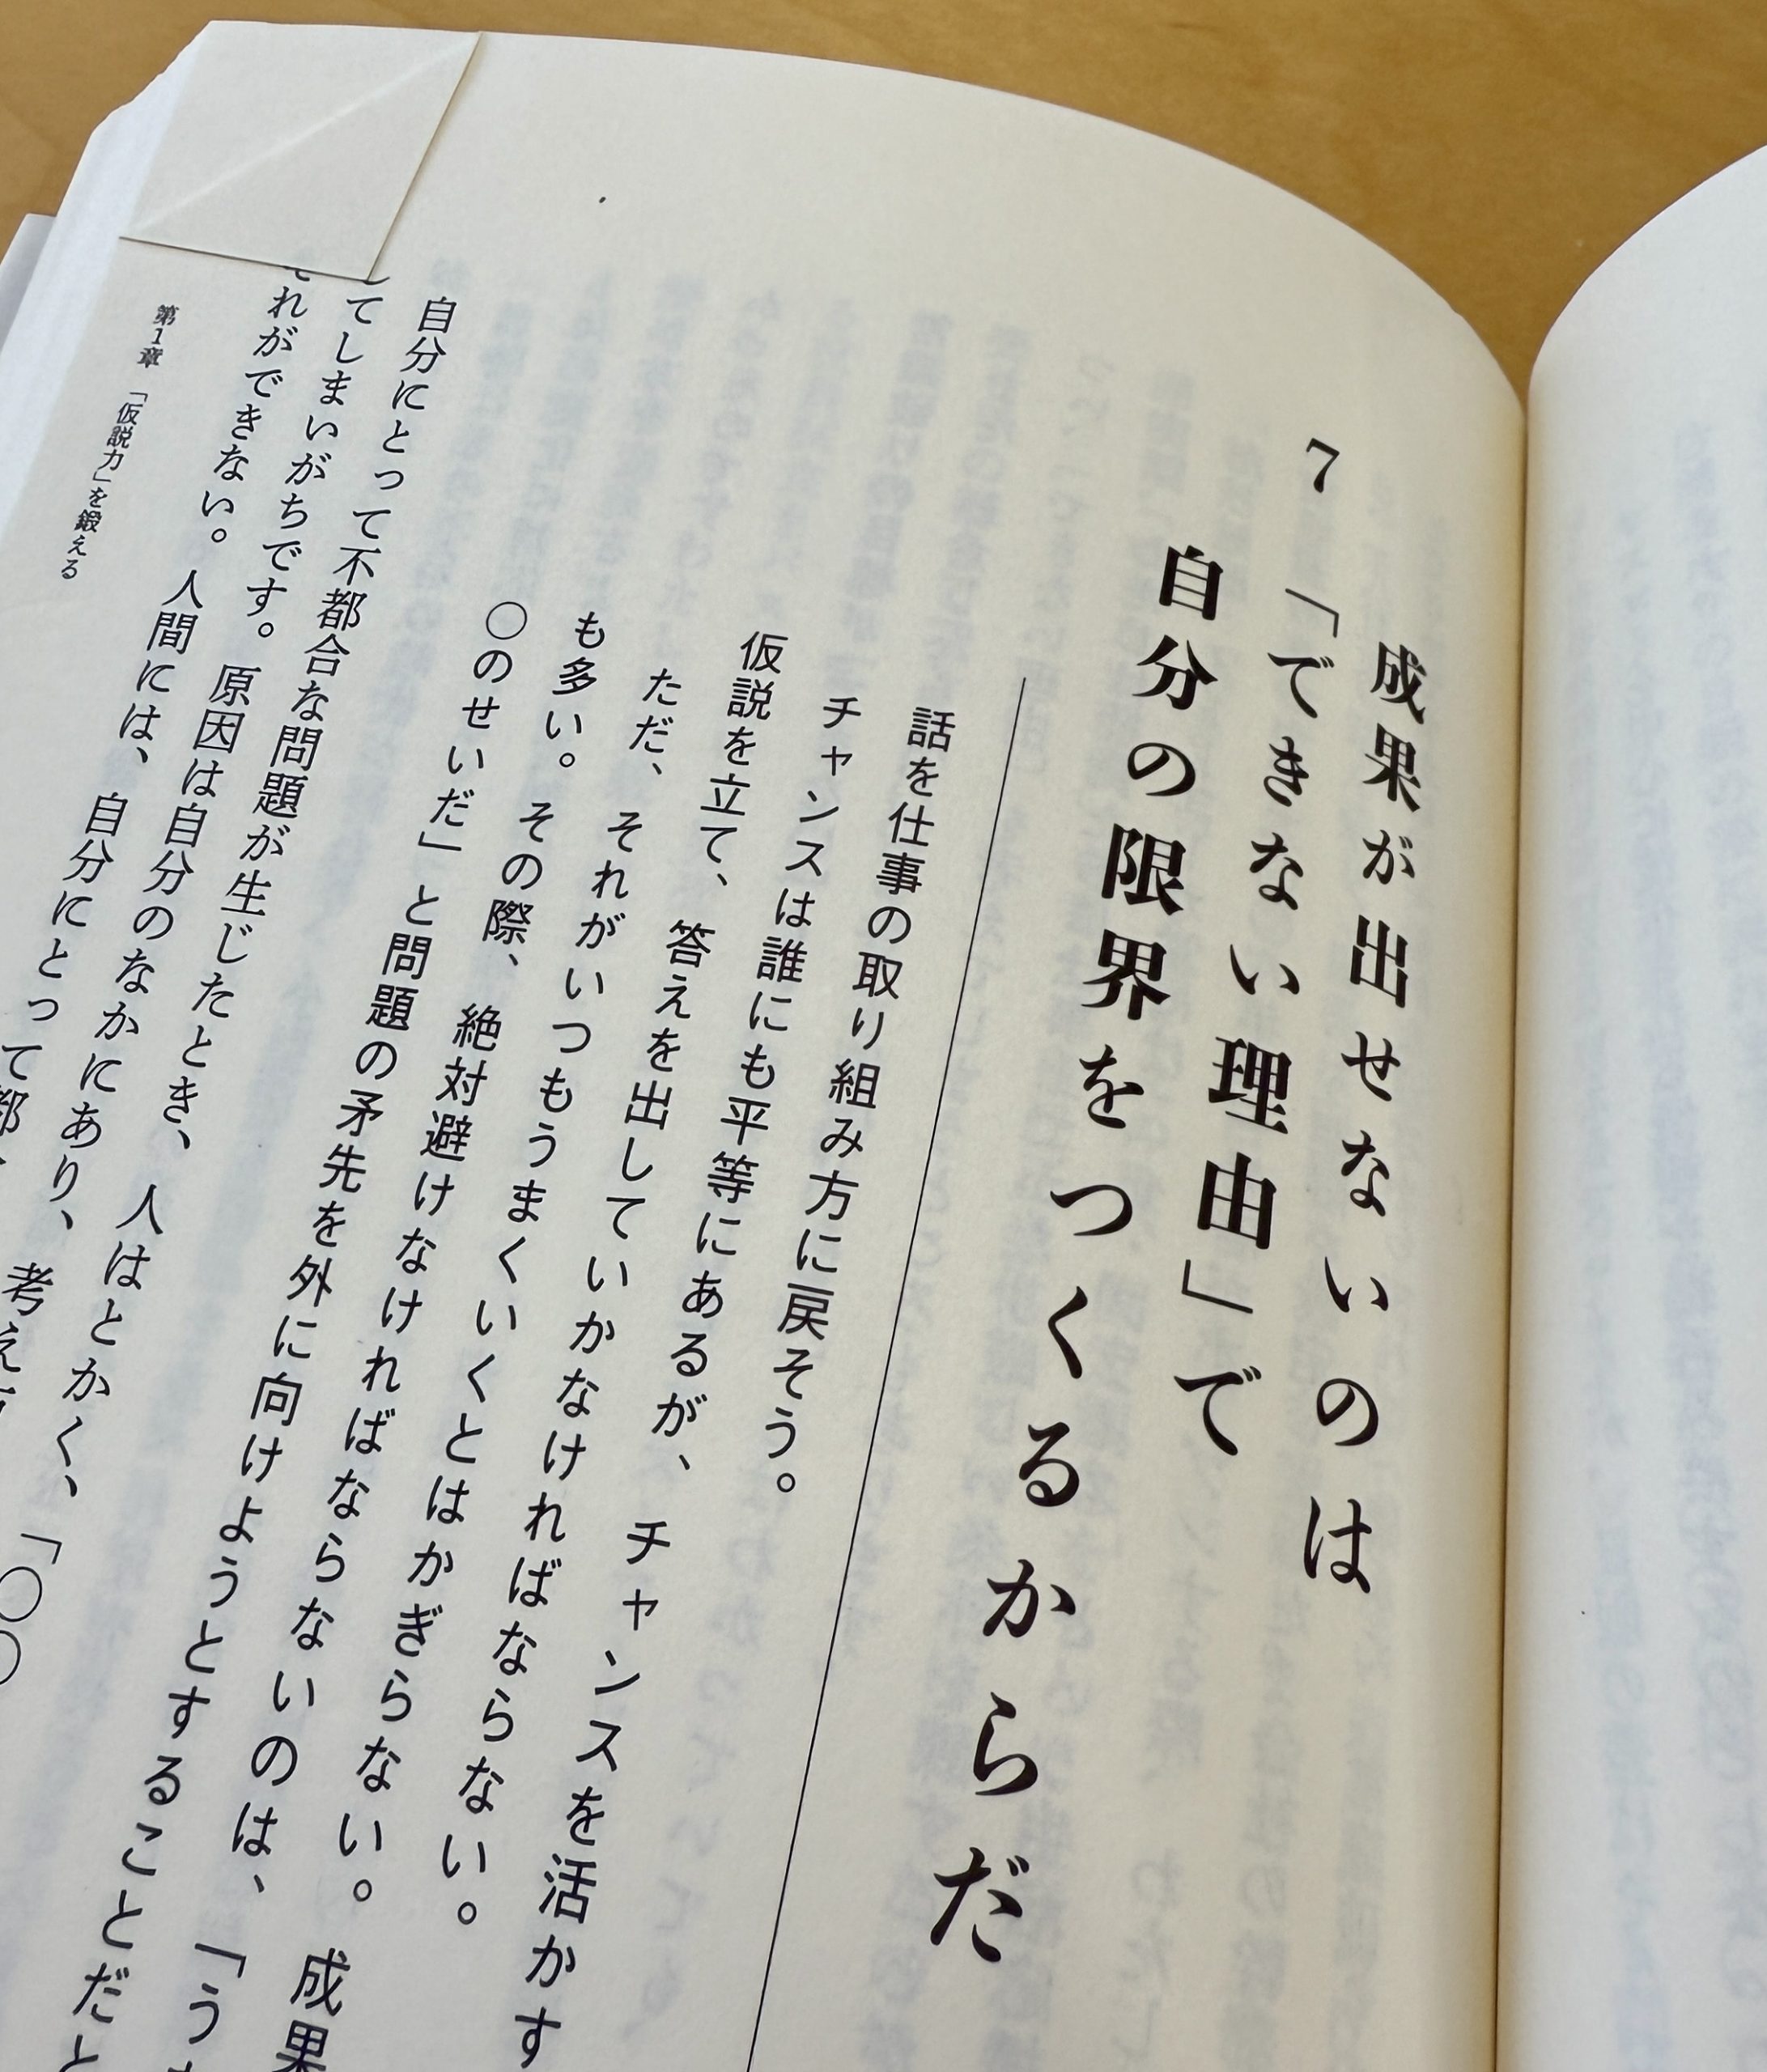 7
成果が出せないのは
「できない理由」で
自分の限界をつくるからだ
話を仕事の取り組み方に戻そう。
チャンスは誰にも平等にあるが、チャンスを活かす
仮説を立て、答えを出していかなければならない。
ただ、それがいつもうまくいくとはかぎらない。成果
も多い。その際、絶対避けなければならないのは、「う
〇のせいだ」と問題の矛先を外に向けようとすることだと
自分にとって不都合な問題が生じたとき、人はとかく、「〇〇
してしまいがちです。原因は自分のなかにあり、考え
それができない。人間には、自分にとって都
第1章 「仮説力」を鍛える